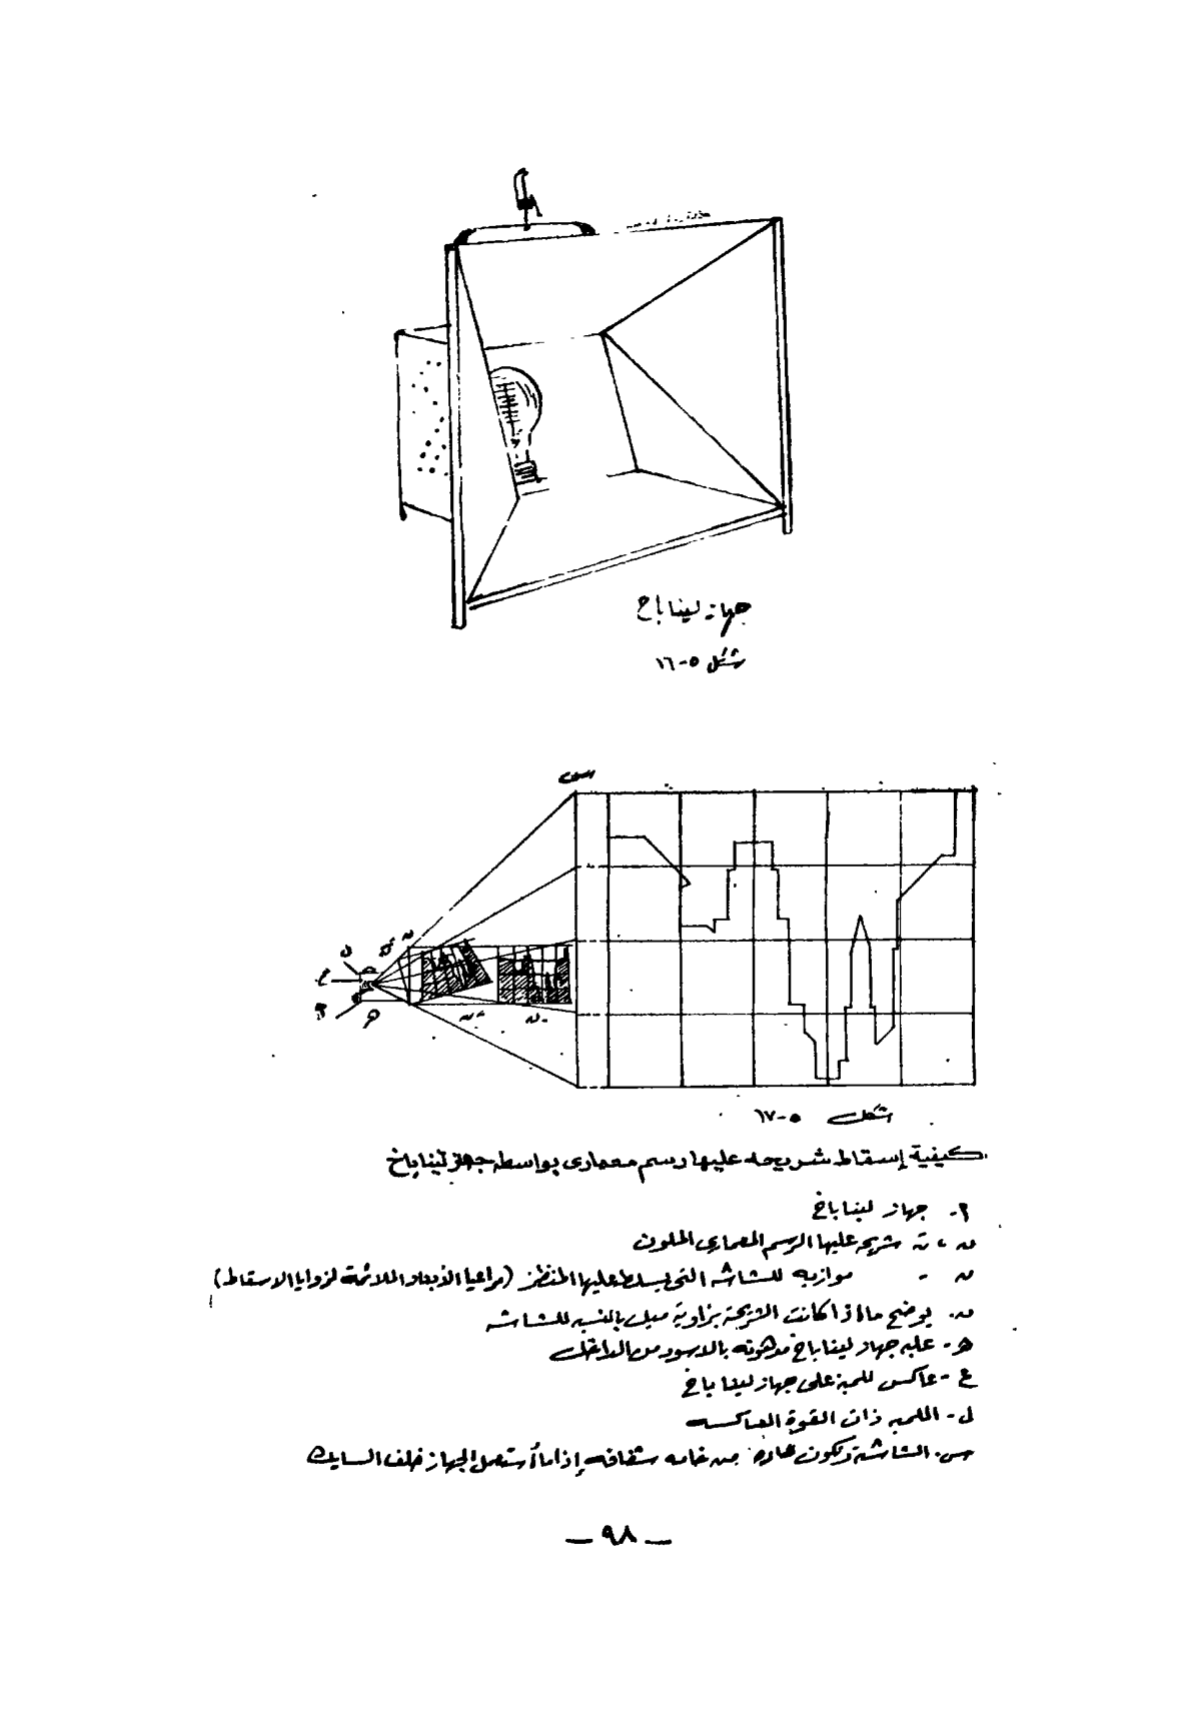 جهاز لينا باخ
شكل ٥-١٦
س
ل
ع
م
ن
ن
شكل ٥-١٧
كيفية إسقاط شريحه عليها رسم معمارى بواسطه جهاز لينا باخ
م- جهاز لينا باخ
شريحه عليها الرسم المعمارى الملون
موازيه للشاشه التى يسلط عليها المنظر (مراعيا الأبعاد الملائمة لزوايا الاسقاط)
ن- يوضح ماذا كانت الشريحة بزاوية ميل بالنسبه للشاشه
هـ- علبه جهاز لينا باخ مدهونه بالاسود من الداخل
ع- عاكس للمبة على جهاز لينا باخ
ل- اللمبه ذات القوة العاكسه
س- الشاشة وتكون عادة من خامه شفافه إذا ما أستعمل الجهاز خلف السايك
— ٩٨ —